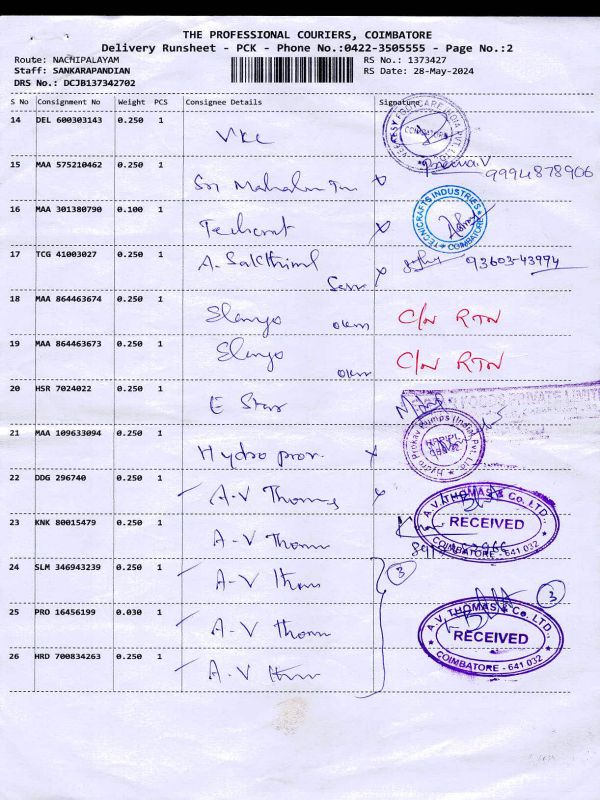 THE PROFESSIONAL COURIERS, COIMBATORE
Delivery Runsheet - PCK - Phone No.:0422-3505555 - Page No.:2
Route: NACHIPALAYAM RS No.: 1373427
Staff: SANKARAPANDIAN RS Date: 28-May-2024
DRS No.: DCJB137342702
S No Consignment No Weight PCS Consignee Details Signature
14 DEL 600303143 0.250 1
VKC COIMBATORE
15 MAA 575210462 0.250 1
Sri Mahalm Preena.V 9994878906
16 MAA 301380790 0.100 1 TECNICRAFTS INDUSTRIES
Techcraft COIMBATORE
17 TCG 41003027 0.250 1
A. Sakthivel 93603-43974
18 MAA 864463674 0.250 1
Elango C/N RTN
19 MAA 864463673 0.250 1
Elango C/N RTN
20 HSR 7024022 0.250 1
E Star PRIVATE LIMIT
21 MAA 109633094 0.250 1
Hydro prov. Hydro Prokav Pumps (India) Pvt. Ltd.
22 DDG 296740 0.250 1
A-V Thomas A.V. THOMAS & Co. LTD.,
23 KNK 80015479 0.250 1 RECEIVED
A-V Thomas COIMBATORE - 641 032
24 SLM 346943239 0.250 1 3
A-V Thomas 3
25 PRO 16456199 0.030 1 A.V. THOMAS & Co. LTD.,
A-V Thomas RECEIVED
26 HRD 700834263 0.250 1 COIMBATORE - 641 032
A-V Thomas